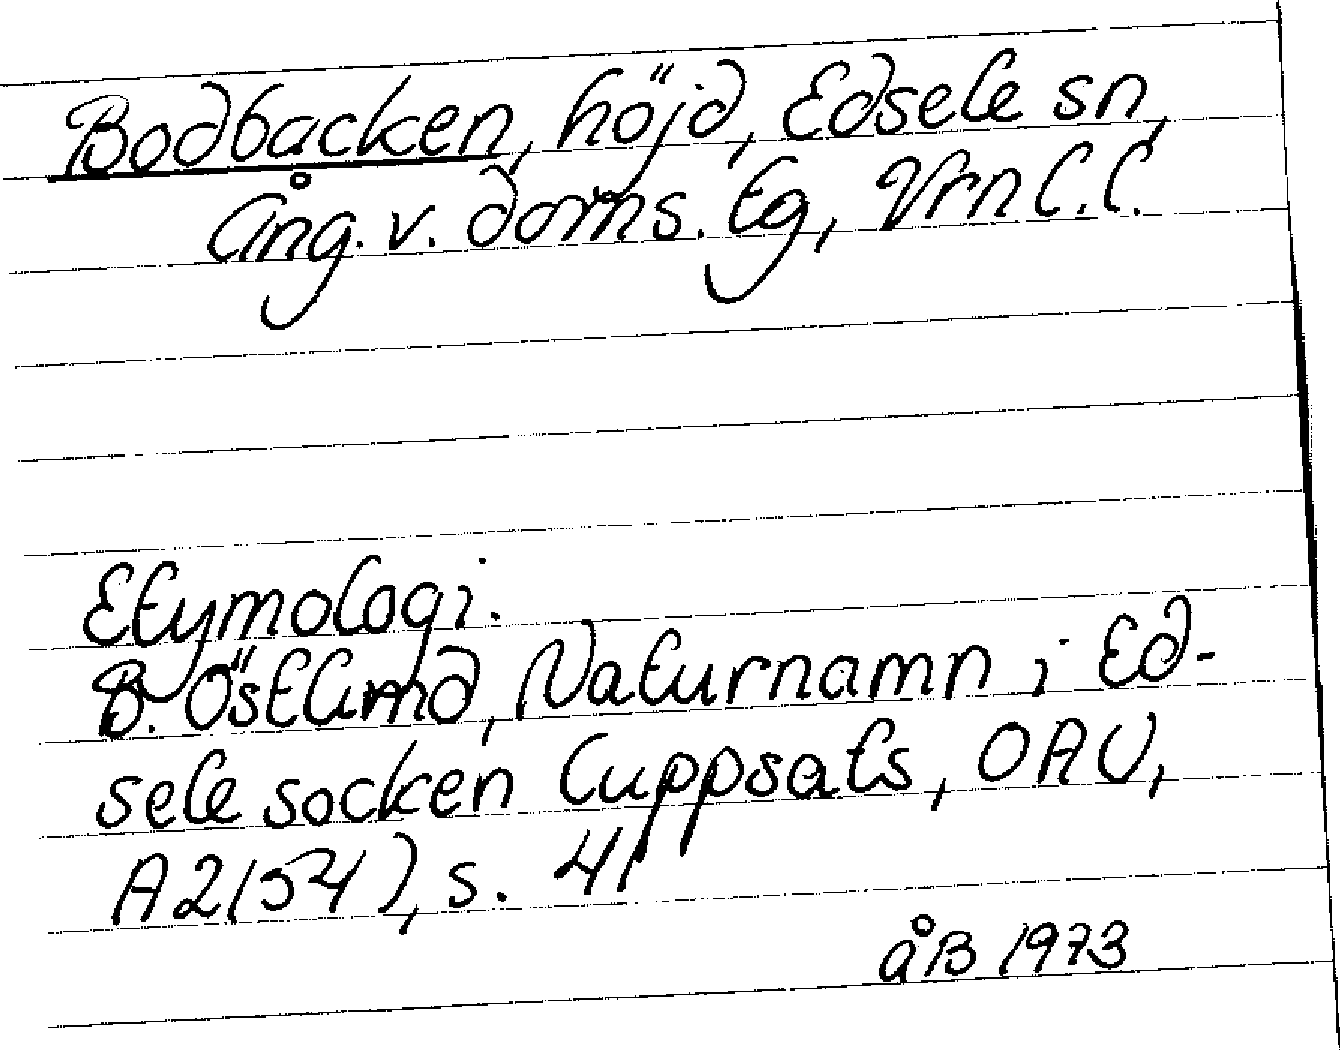 Bodbacken, höjd, Edsele sn,
Ång. v. doms. tg, Vrnl. l.
Etymologi.
B. Östlund, Naturnamn i Ed-
sele socken (uppsats, OAU,
A2154), s. 41
ÅB 1973